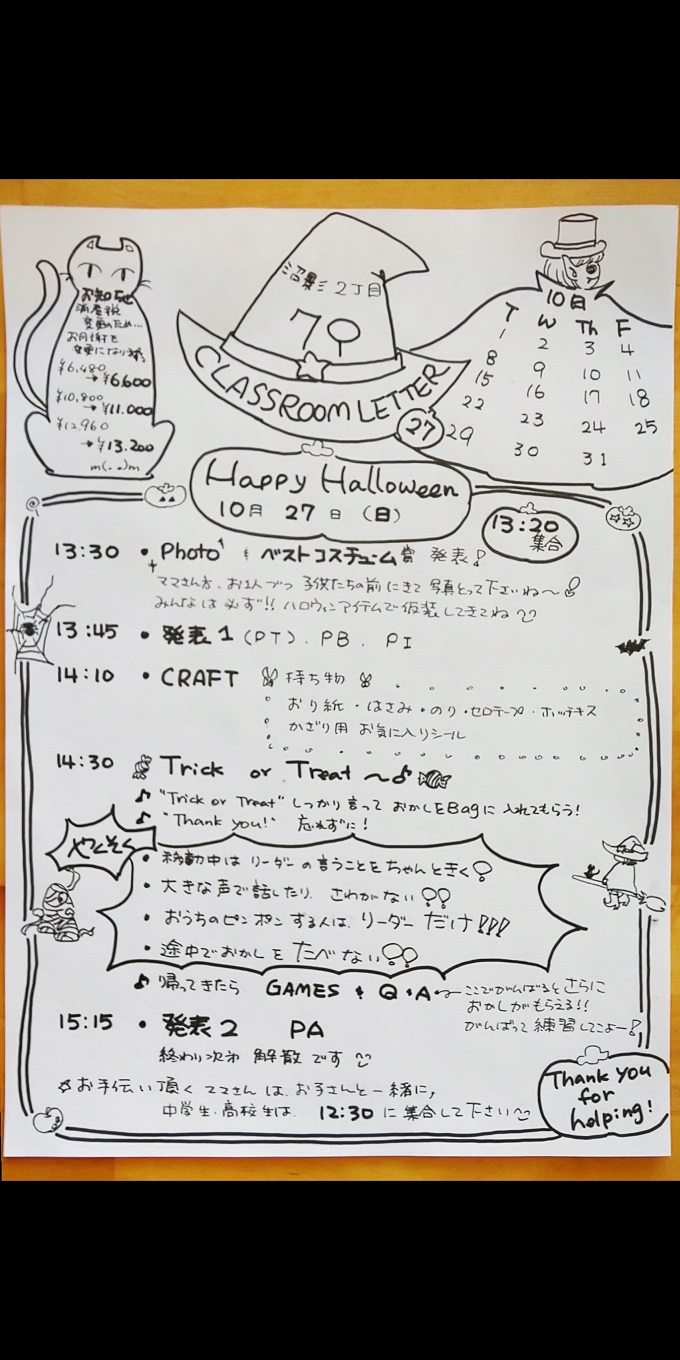 お知らせ
消費税
変更のため...
お月謝を
変更になります
¥6,480
→¥6,600
¥10,800
→¥11,000
¥12,960
→¥13,200
m(..)m
沼影2丁目
CLASSROOM LETTER
10月
T W Th F
1 2 3 4
8 9 10 11
15 16 17 18
22 23 24 25
27 29 30 31
Happy Halloween
10月 27日 (日)
13:20
集合
13:30 • Photo & ベストコスチューム賞 発表!
ママさん方、お1人づつ 子供たちの前にきて 写真とって下さいね〜
みんなは必ず!! ハロウィンアイテムで仮装してきてね
13:45 • 発表1(PT). PB. PI
14:10 • CRAFT 持ち物
おり紙・はさみ・のり・セロテープ・ホッチキス
かざり用 お気に入りシール
14:30 Trick or Treat 〜♪
♪ "Trick or Treat" しっかり言って おかしをBagに入れてもらう!
♪ "Thank you!" 忘れずに!
やくそく
• 移動中は リーダーの言うことをちゃんときく
• 大きな声で話したり、さわがない
• おうちのピンポンする人は、リーダーだけ!!!
• 途中でおかしをたべない
♪ 帰ってきたら GAMES & Q&A
ここでがんばるとさらに
おかしがもらえる!!
がんばって練習してこよー!
15:15 • 発表2 PA
終わり次第 解散です
☆お手伝い頂くママさんは、お子さんと一緒に、
中学生・高校生は、12:30に集合して下さい
Thank you
for
helping!